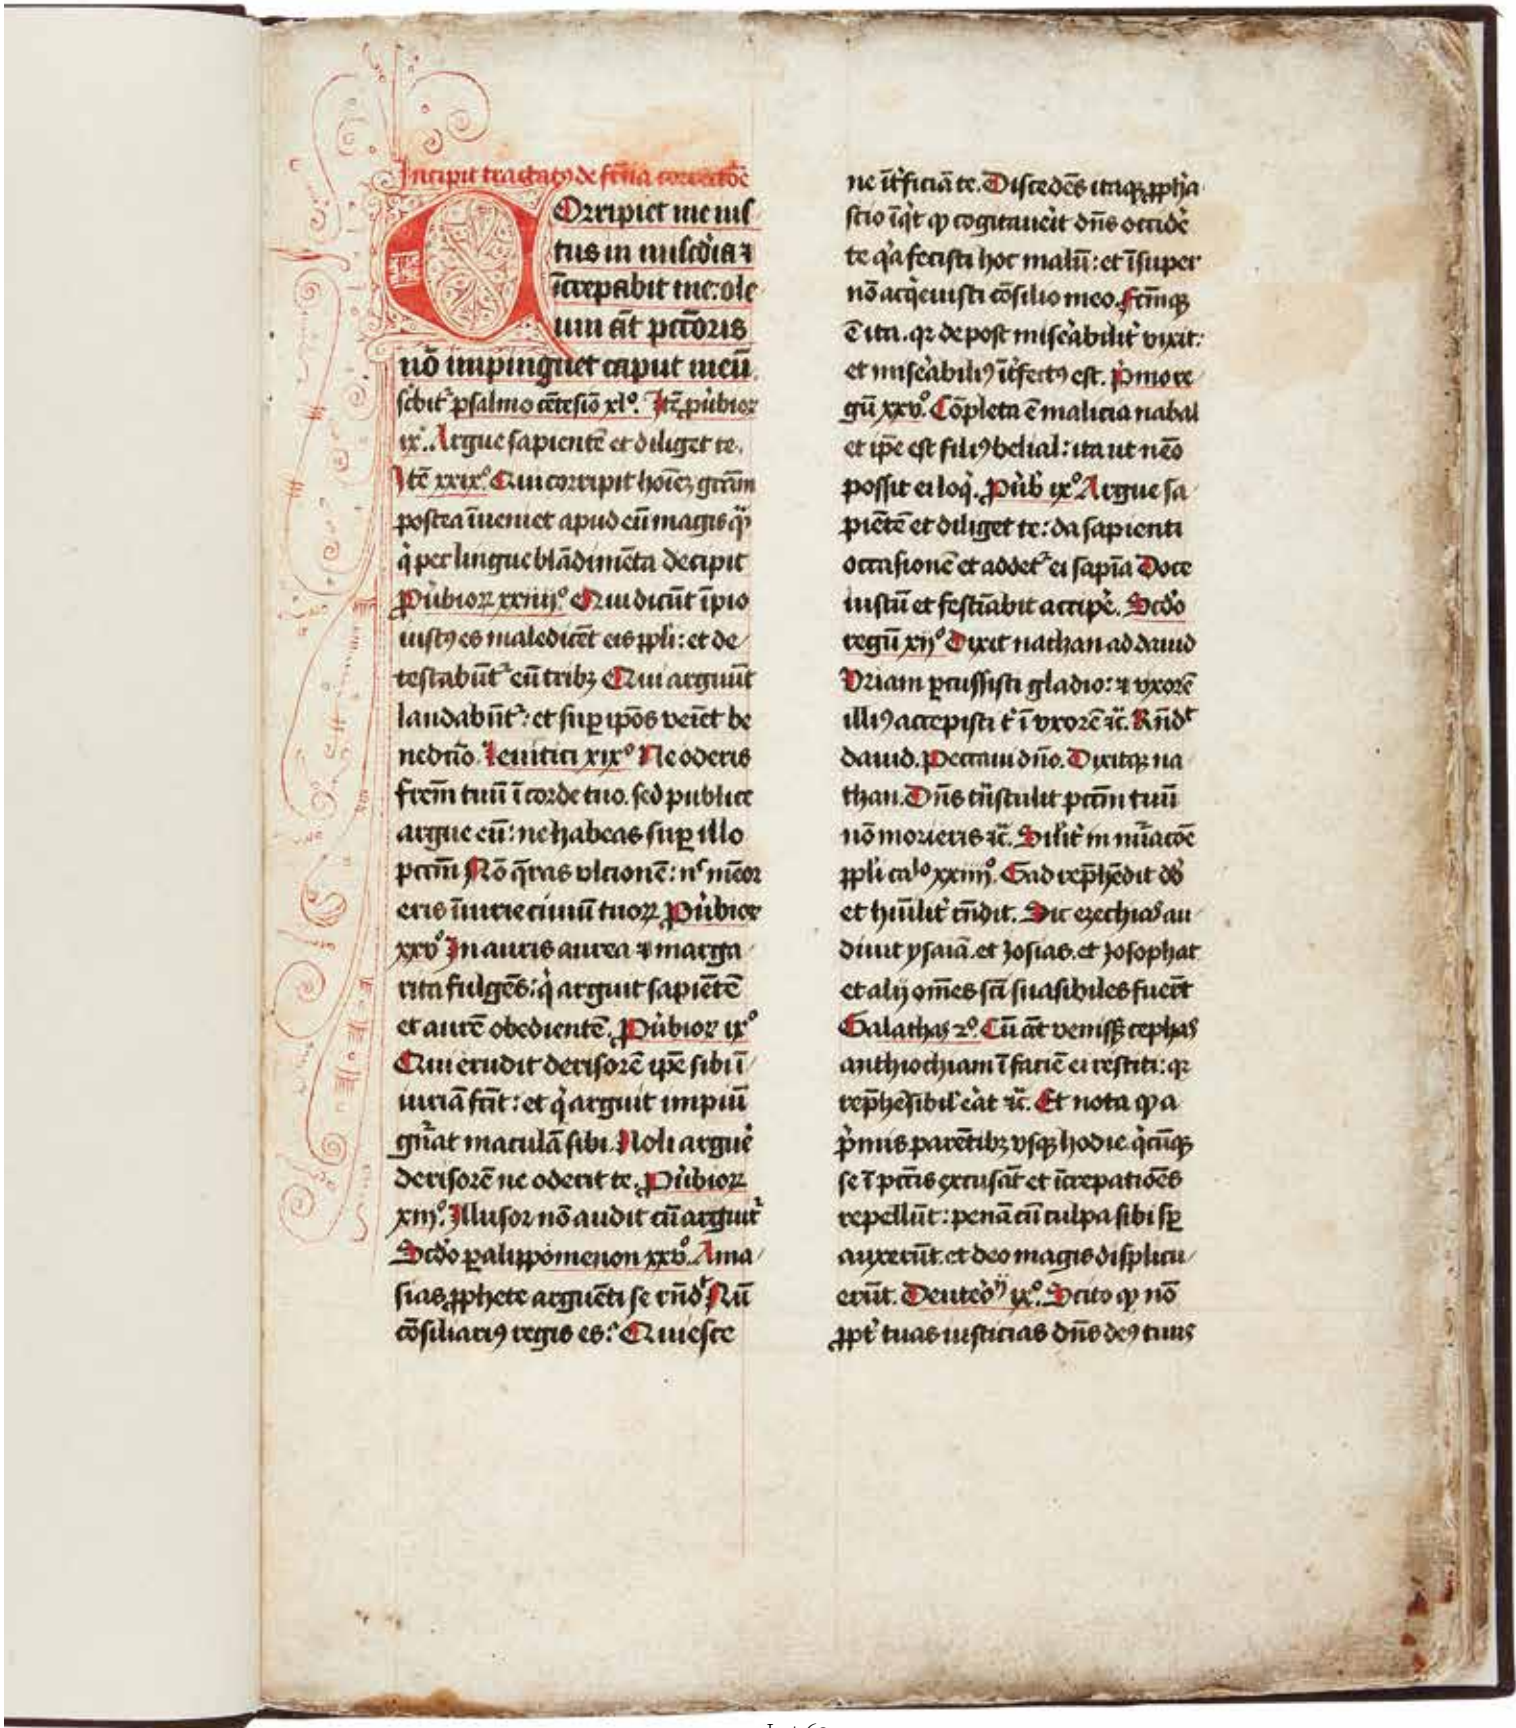 Incipit tractatꝯ de frn̄a correctōe
COrripiet me ius
tus in mīscd̓ia ⁊
īcrepabit me: ole
um āt pctōris
nō impinguet caput meū.
sc̓bit᷑ psalmo cētesiō xlº. Itē ꝓu̓bioꝝ
ixº. Argue sapientē et diliget te.
Itē xxixº. Qui corripit hoīeꝫ gr̄am
postea īueniet apud eū magis qᷓꝫ
q̓ per lingue blādimēta decipit
ꝓu̓bioꝝ xxiiijº Qui dicūt īpio
iustꝯ es maledicēt eis ppl̓i: et de
testabūt᷑ eū tribꝫ Qui arguūt
laudabūt᷑: et suꝑ ip̄os veīet be
nedctō. Leuitici xixº Ne oderis
frēm tuū ī corde tuo. sed publice
argue eū: ne habeas suꝑ illo
pctm̄ Nō q̄ras vlcionē: nᶜ mēor
eris īiurie ciuiū tuoꝝ ꝓu̓bioꝝ
xxvº In auris aurea ⁊ marga
rita fulgēs: q̓ arguit sapiētē
et aurē obedientē. ꝓu̓bioꝝ ixº
Qui erudit derisorē ip̄e sibi ī
iuriā fc̄it: et q̓ arguit impiū
gn̄at maculā sibi. Noli argue̓
derisorē ne oderit te. ꝓu̓bioꝝ
xiijº. Illusor nō audit cū arguit᷑
Scd̓o ꝑalippomenon xxvº. Ama
sias ꝓphete arguēti se rn̄dᵗ Nū
cōsiliariꝯ regis es: Quiesce
ne īt̓ficiā te. Discedēs itaqꝫ ꝓph̓a
scio īq̓t ꝙ cogitaue̓it dn̄s occide̓
te q̓a fecisti hoc malū: et īsuper
nō acq̓euisti cōsilio meo. fc̄mqꝫ
ē ita. qꝛ de post mise̓abilit̓ vixit:
et mise̓abiliꝯ īt̓fectꝯ est. P̓mo re
gū xxvº. Cōpleta ē malicia nabal
et ip̄e est filiꝯ belial: ita ut nēo
possit ei loq̓. ꝓu̓b ixº Argue sa
piētē et diliget te: da sapienti
occasionē et addet᷑ ei sapīa Doce
iustū et festīabit accipe̓. Scd̓o
regū xijº Dixit nathan ad dauid
Vriam ꝑcussisti gladio: ⁊ vxorē
illiꝯ accepisti t̓ ī vxorē ⁊c̄. Rn̄dᵗ
dauid. Peccaui dn̄o. Dixitqꝫ na
than. Dn̄s tn̄stulit pctm̄ tuū
nō morieris ⁊c̄. Silit̓ in nūacōe
ppl̓i caᵒ xxiiijº. Gad rep̄hēdit dd̓
et hūilit̓ rn̄dit. Sic ezechias au
diuit ysaiā. et Josias. et Josophat
et alij om̄es scī suasibiles fuer̄t
Galathas 2º. Cū āt venissꝫ cephas
anthiochiam ī faciē ei restiti: qꝛ
rep̄hēsibil̓ e̓at ⁊c̄. Et nota ꝙ a
p̓mis parētibꝫ vsqꝫ hodie q̓cūqꝫ
se ī pctīs excusāt et īcrepatiōes
repellūt: penā cū culpa sibi sꝑ
auxerūt. et deo magis displicu
erūt. Deute̓o ixº. Scito ꝙ nō
ꝓpt̓ tuas iusticias dn̄s deꝯ tuus